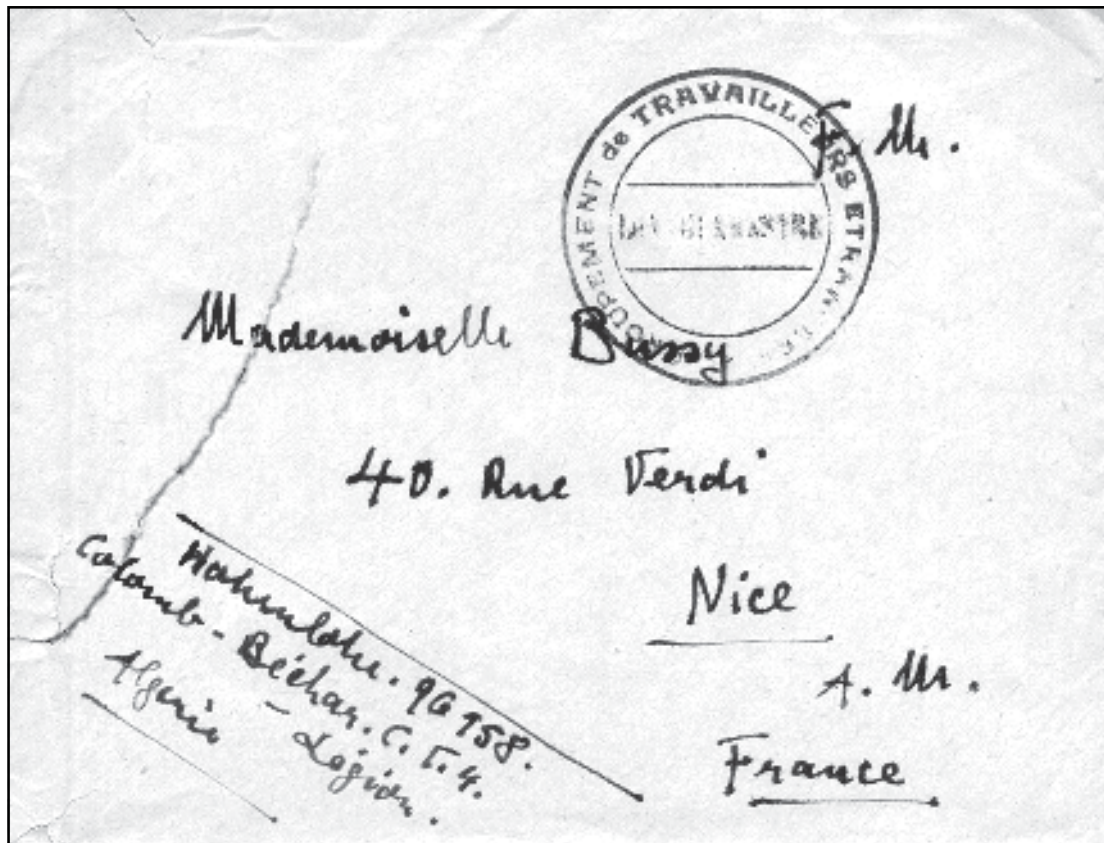 GROUPEMENT de TRAVAILLEURS ETRANGERS
F. M.
Mademoiselle Bussy
40. Rue Verdi
Nice
A. M.
France
Colomb-Béchar. C. T. 4.
Algerie - Légion.